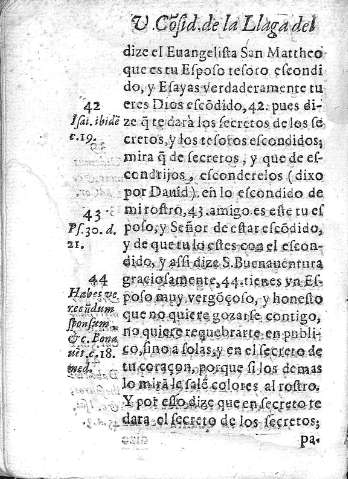 V. Cõsid. de la Llaga del
dize el Euangelista San Mattheo
que es tu Esposo tesoro escondi
do, y Esayas verdaderamente tu
eres Dios escõdido, 42. pues di-
ze q̃ te dará los secretos de los se
cretos, y los tesoros escondidos;
mira q̃ de secretos, y que de es-
condrijos, esconderelos (dixo
por Dauid) en lo escondido de
mi rostro, 43. amigo es este tu es
poso, y Señor de estar escõdido,
y de que tu lo estes con el escon-
dido, y assi dize S. Buenauentura
graciosamente, 44. tienes vn Es-
poso muy vergõçoso, y honesto
que no quiere gozarse contigo,
no quiere requebrarte en publi-
co, sino a solas, y en el secreto de
tu coraçon, porque si los demas
lo mirã le salẽ colores al rostro.
Y por esso dize que en secreto te
dara el secreto de los secretos;
pa-
42
Isai. ibidẽ
c. 19.
43
Ps. 30. d.
21.
44
Habes ve
recũdum
sponsum
&c. Bona
uẽt. c. 18.
med.